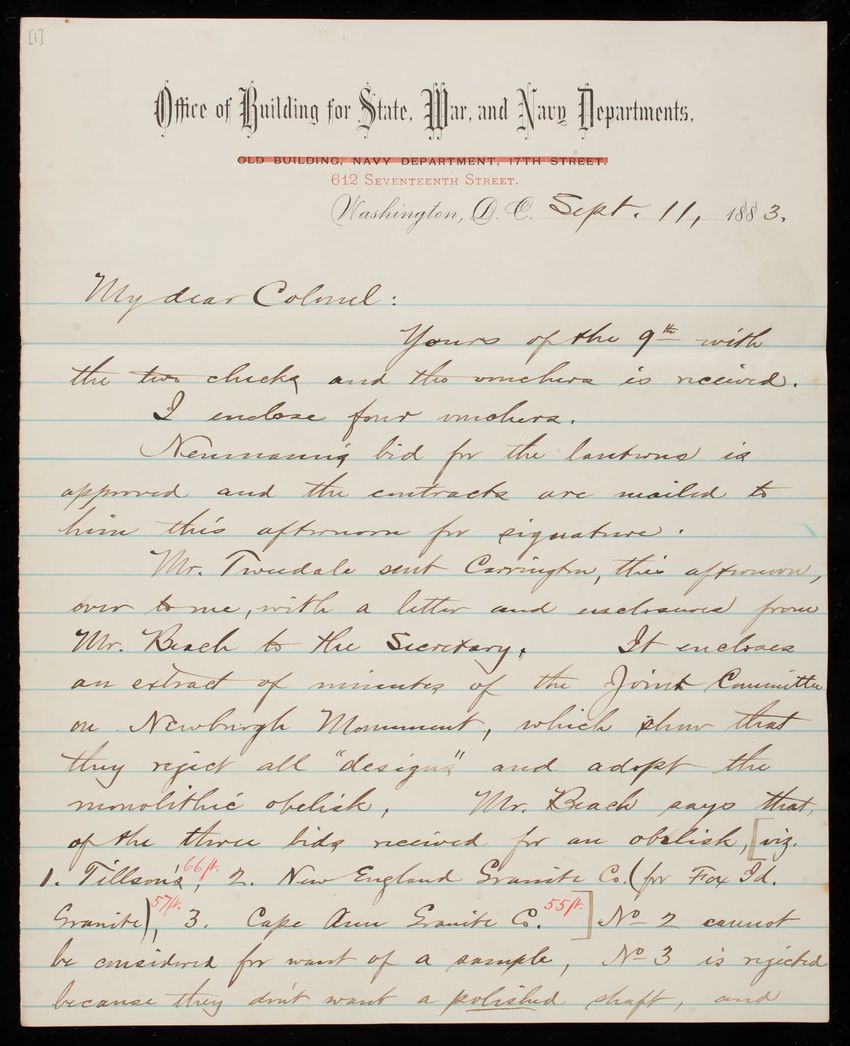 [1]
Office of Building for State, War, and Navy Departments.
OLD BUILDING, NAVY DEPARTMENT, 17TH STREET.
612 SEVENTEENTH STREET.
Washington, D. C. Sept. 11, 1883.
My dear Colonel:
Yours of the 9th with
the two checks and the vouchers is received.
I enclose four vouchers.
Neumann's bid for the lanterns is
approved and the contracts are mailed to
him this afternoon for signature.
Mr. Tweedale sent Carrington, this afternoon,
over to me, with a letter and enclosures from
Mr. Beach to the Secretary. It encloses
an extract of minutes of the Joint Committee
on Newburgh Monument, which show that
they reject all "designs" and adopt the
monolithic obelisk. Mr. Beach says that,
of the three bids received for an obelisk, [viz.
1. Tillson's, 66 ft. 2. New England Granite Co. (for Fox Id.
Granite), 57 ft. 3. Cape Ann Granite Co. 55 ft.] No 2 cannot
be considered for want of a sample, No 3 is rejected
because they don't want a polished shaft, and